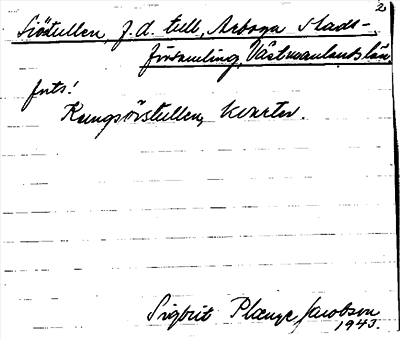 2
Sjötullen, f.d. tull, Arboga stads-
församling, Västmanlands län
forts!
Kungsörstullen, kvarter.
Sigbrit Plænge Jacobson
1943.